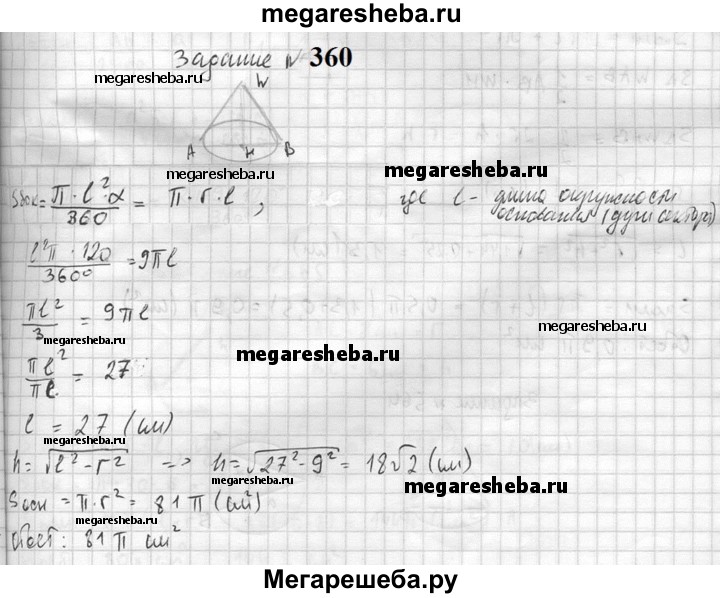 megaresheba.ru
Задание № 360
W
megaresheba.ru
A H B
megaresheba.ru
megaresheba.ru
Sбок = π · l² · α / 360 = π · r · l , где l - длина окружности
основания (дуги сектора)
l²π · 120 / 360° = 9πl
πl² / 3 = 9πl
megaresheba.ru
megaresheba.ru
megaresheba.ru
πl² / πl = 27
l = 27 (см)
megaresheba.ru
h = √l² - r² => h = √27² - 9² = 18√2 (см)
megaresheba.ru
megaresheba.ru
Sосн = π · r² = 81 π (см²)
megaresheba.ru
Ответ: 81 π см²
Мегарешеба.ру